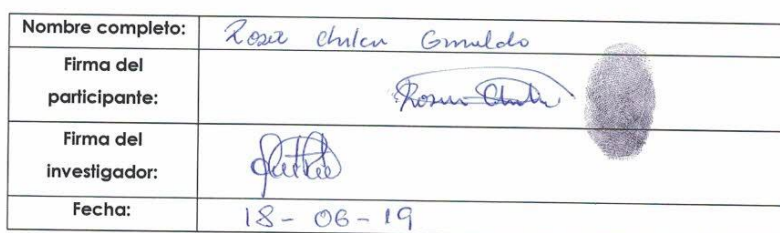 Nombre completo: Rosa Chulen Grnaldo
Firma del
participante: Rosa
Firma del
investigador:
Fecha: 18 - 06 - 19